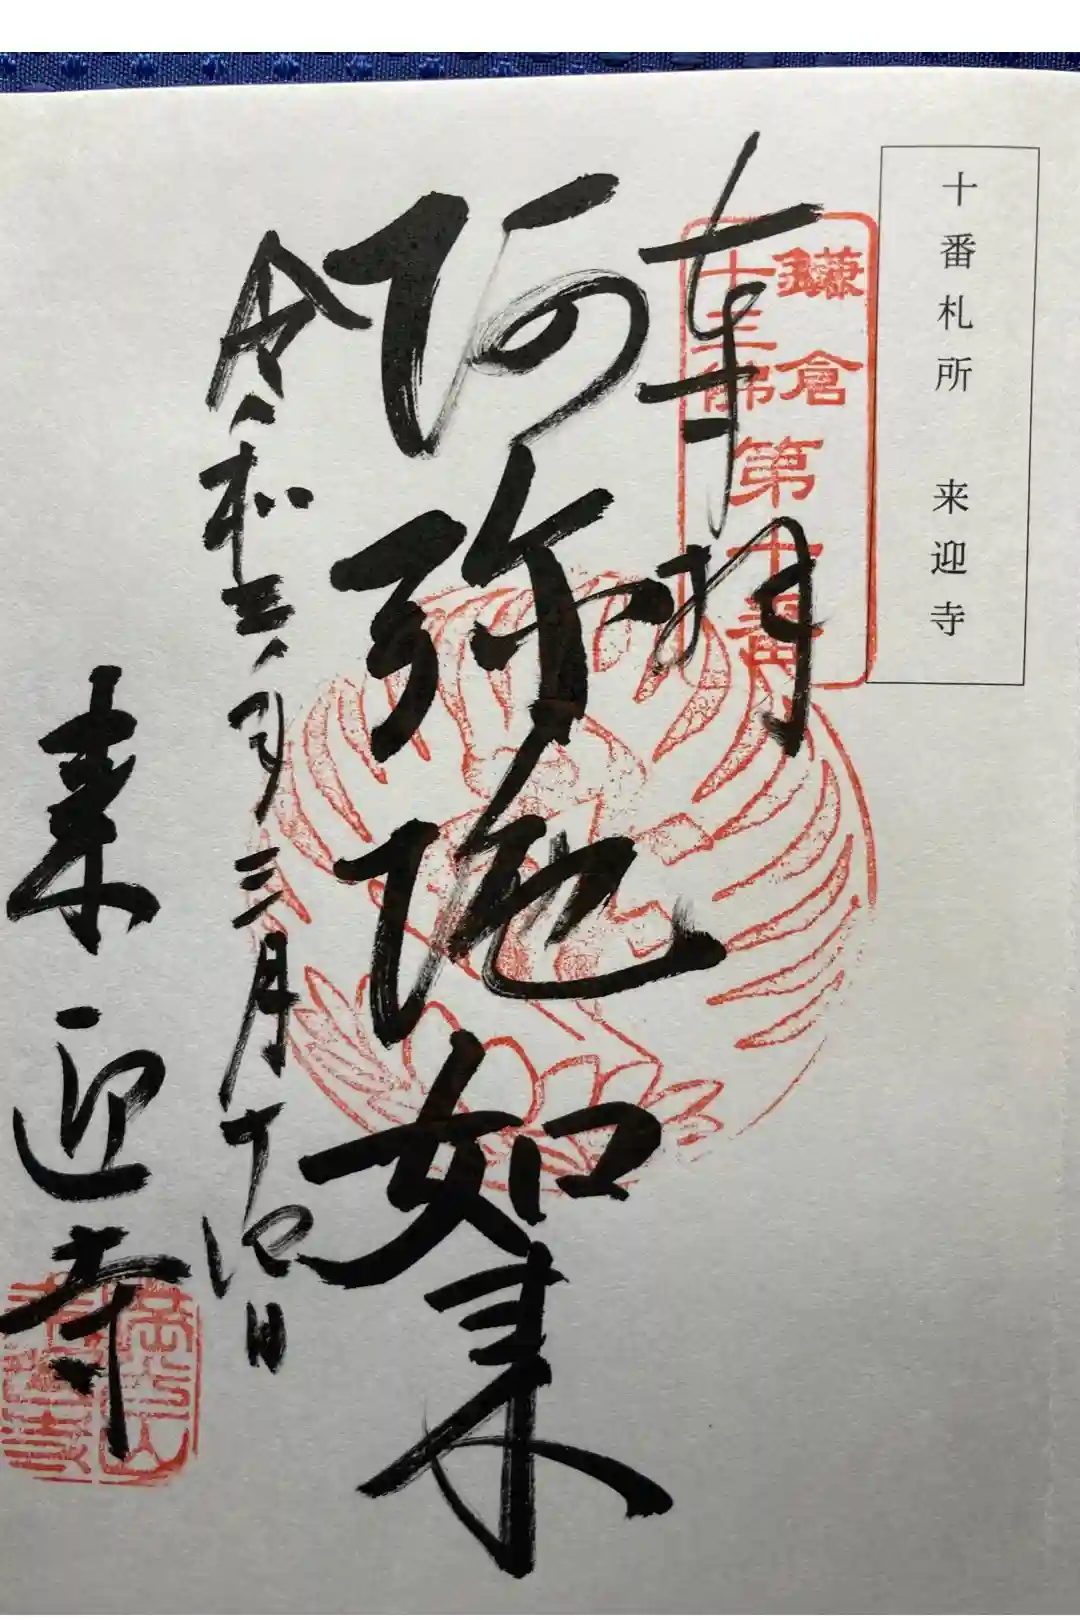 十番札所 来迎寺
鎌倉
十三佛
第十番
奉拝
阿弥陀如来
令和三年三月十四日
来迎寺
満光山
来迎寺